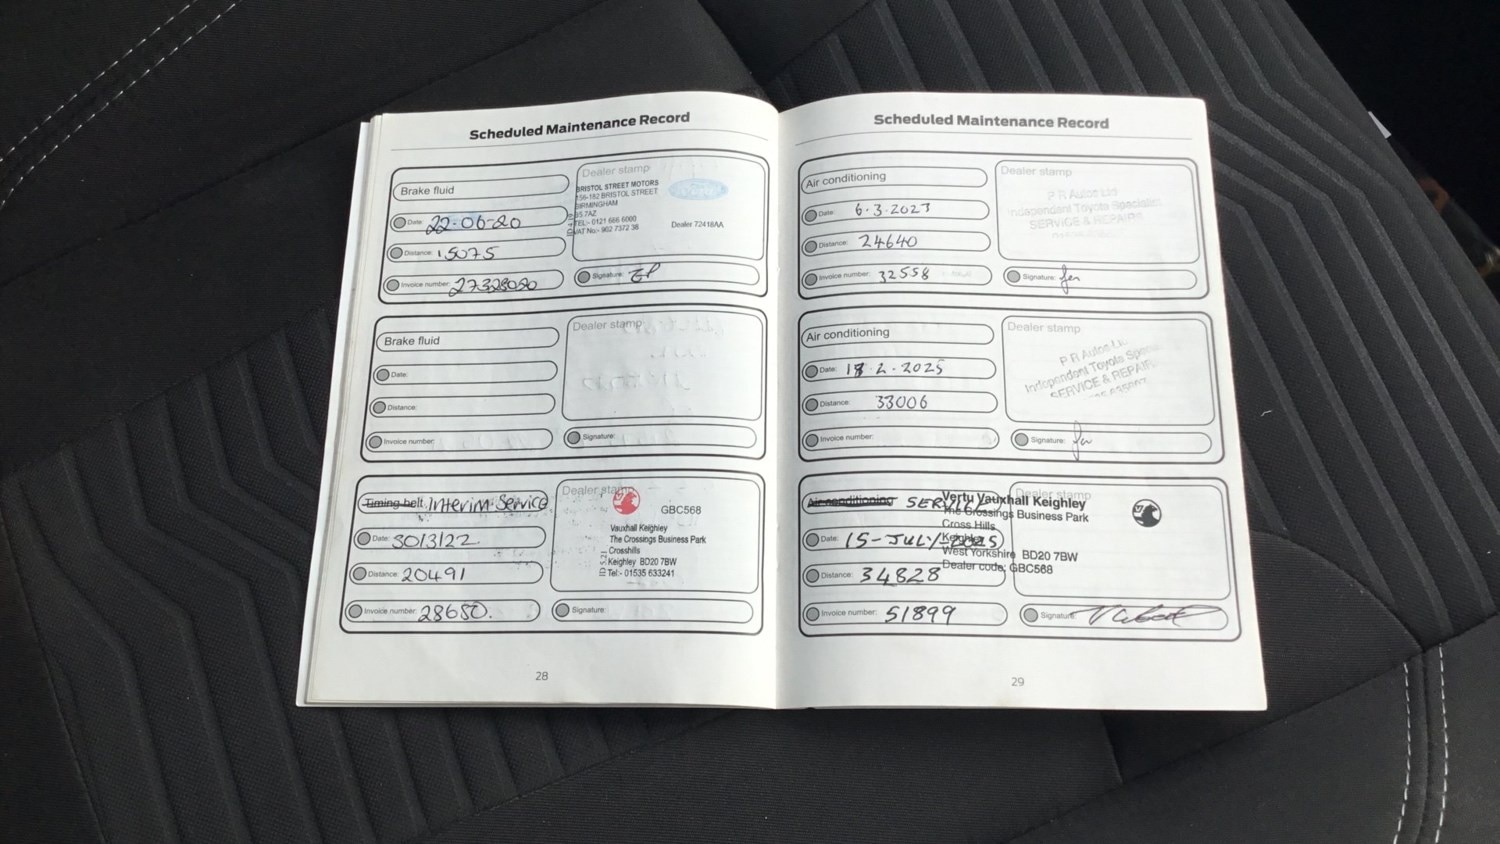 Scheduled Maintenance Record
Brake fluid
Date: 22-06-20
Distance: 15075
Invoice number: 27328090
Dealer stamp
BRISTOL STREET MOTORS
156-182 BRISTOL STREET
BIRMINGHAM
B5 7AZ
TEL:- 0121 666 6000
VAT No:- 902 7372 38
Dealer 72418AA
Signature:
Brake fluid
Date:
Distance:
Invoice number:
Dealer stamp
Signature:
Timing belt Interim Service
Date: 30/3/22
Distance: 20491
Invoice number: 28680.
Dealer stamp
GBC568
Vauxhall Keighley
The Crossings Business Park
Crosshills
Keighley BD20 7BW
Tel:- 01535 633241
Signature:
28
Scheduled Maintenance Record
Air conditioning
Date: 6.3.2023
Distance: 24640
Invoice number: 32558
Dealer stamp
P R Autos Ltd
Independent Toyota Specialist
SERVICE & REPAIRS
Signature:
Air conditioning
Date: 18.2.2025
Distance: 33006
Invoice number:
Dealer stamp
P R Autos
Independent Toyota
SERVICE & REPAIR
Signature:
Air conditioning SERVICE
Date: 15-JULY-2025
Distance: 34828
Invoice number: 51899
Dealer stamp
Vertu Vauxhall Keighley
The Crossings Business Park
Cross Hills
Keighley
West Yorkshire BD20 7BW
Dealer code: GBC568
Signature:
29